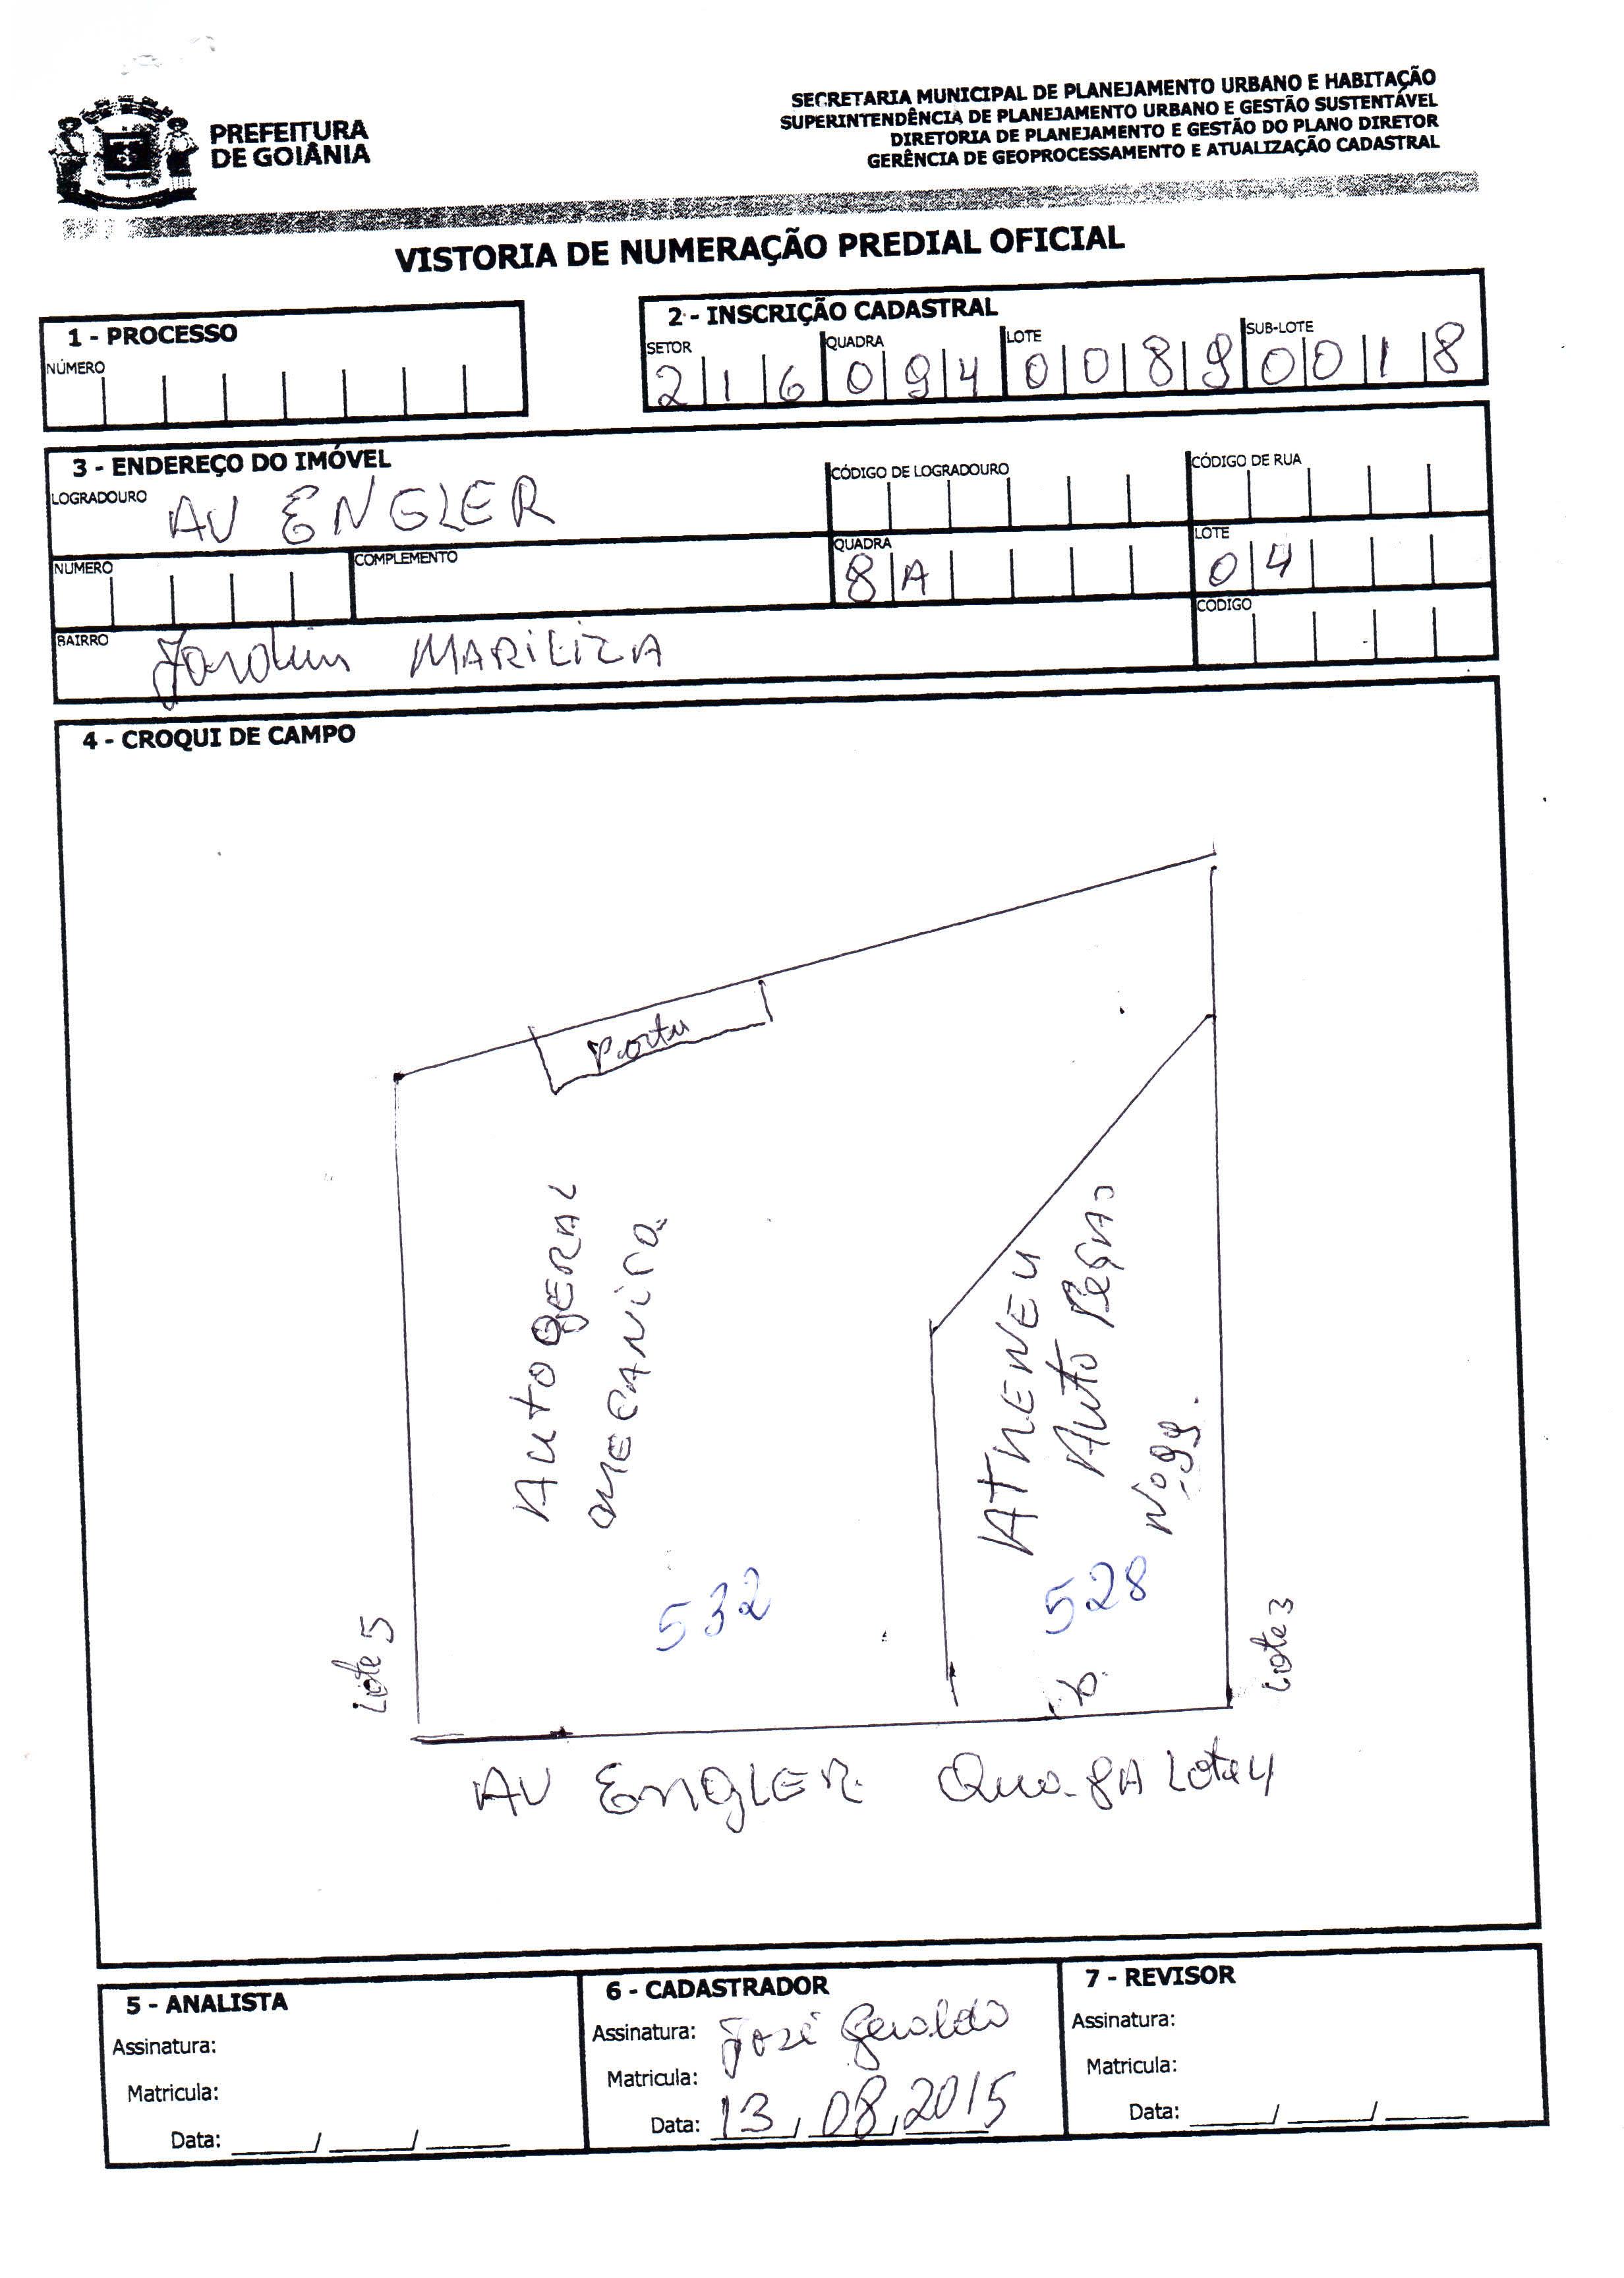 PREFEITURA
DE GOIÂNIA
SECRETARIA MUNICIPAL DE PLANEJAMENTO URBANO E HABITAÇÃO
SUPERINTENDÊNCIA DE PLANEJAMENTO URBANO E GESTÃO SUSTENTÁVEL
DIRETORIA DE PLANEJAMENTO E GESTÃO DO PLANO DIRETOR
GERÊNCIA DE GEOPROCESSAMENTO E ATUALIZAÇÃO CADASTRAL
VISTORIA DE NUMERAÇÃO PREDIAL OFICIAL
1 - PROCESSO
NÚMERO
2 - INSCRIÇÃO CADASTRAL
SETOR QUADRA LOTE SUB-LOTE
2 1 6 0 9 4 0 0 8 9 0 0 1 8
3 - ENDEREÇO DO IMÓVEL
LOGRADOURO AV ENGLER CÓDIGO DE LOGRADOURO CÓDIGO DE RUA
NUMERO COMPLEMENTO QUADRA 8 A LOTE 0 4
BAIRRO Jardim MARILIZA CODIGO
4 - CROQUI DE CAMPO
Auto GERAL
MECANICA
532
ATHENEU
Auto Peças
Nº 99.
528
Lote 5
Lote 3
AV ENGLER Qua. 8A Lote 4
5 - ANALISTA
Assinatura:
Matricula:
Data: ____/____/____
6 - CADASTRADOR
Assinatura: José Geraldo
Matricula:
Data: 13/08/2015
7 - REVISOR
Assinatura:
Matricula:
Data: ____/____/____